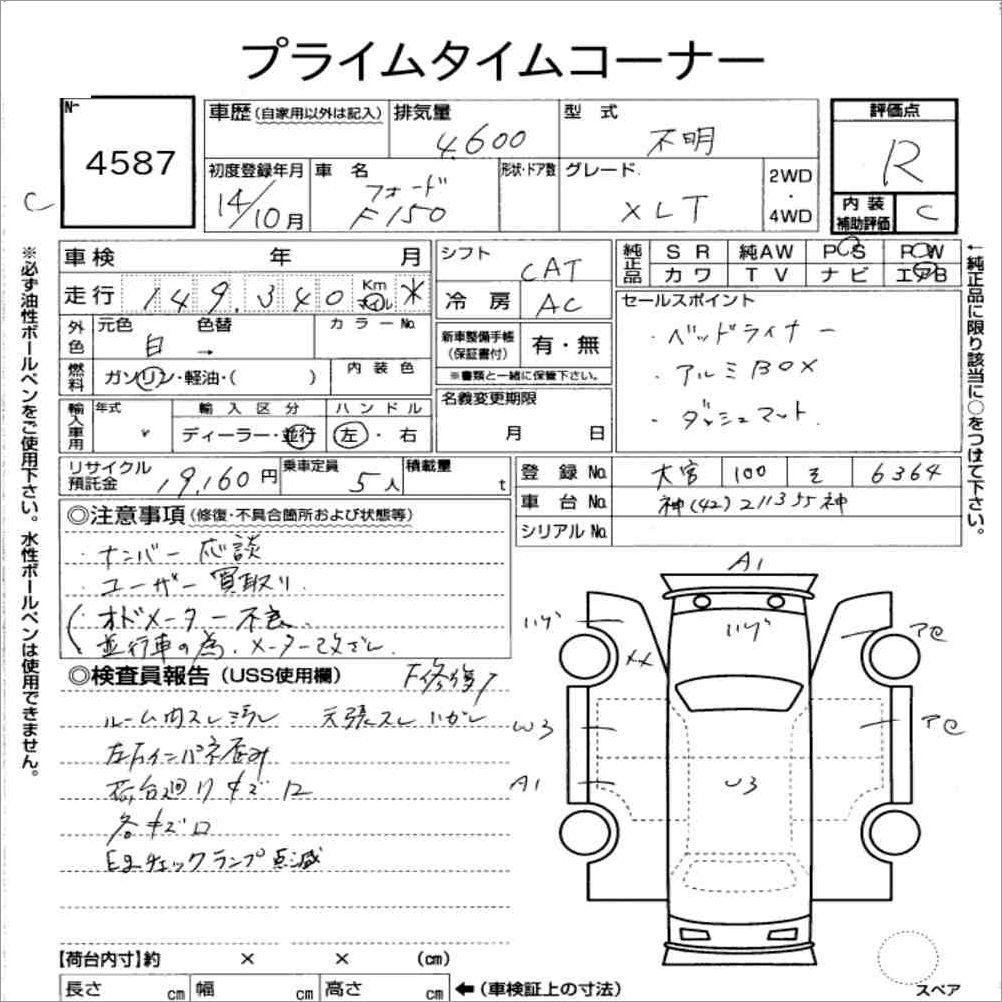 プライムタイムコーナー
№
4587
C
車歴(自家用以外は記入)
排気量
4,600
型式
不明
評価点
R
内装補助評価
C
初度登録年月
14/10月
車名
フォード
F150
形状・ドア数
グレード
XLT
2WD
・
4WD
※必ず油性ボールペンをご使用下さい。水性ボールペンは使用できません。
車検 年 月
走行 149,340 Km マイル *
外色 元色 白 → 色替 カラーNo.
燃料 ガソリン・軽油・( )
内装色
輸入車用 年式
輸入区分
ディーラー・並行
ハンドル
左・右
シフト
CAT
冷房
AC
新車整備手帳(保証書付)
有・無
※書類と一緒に保管下さい。
名義変更期限
月 日
純正品
SR 純AW PS PW
カワ TV ナビ エアB
セールスポイント
・ベッドライナー
・アルミBOX
・ダッシュマット
←純正品に限り該当に○をつけて下さい。
リサイクル預託金
19,160円
乗車定員
5人
積載量
t
登録No. 大宮 100 そ 6364
車台No. 神(42)211355神
シリアルNo.
◎注意事項(修復・不具合箇所および状態等)
・ナンバー応談
・ユーザー買取り
・オドメーター不良
・並行車の為、メーター改ざん
◎検査員報告(USS使用欄)
F修復
ルーム内スレ汚レ 天張スレ
左右インパネ歪み
荷台廻りキズ凹
各キズ凹
Egチェックランプ点滅
A1
XX
W3
A1
U3
【荷台内寸】約 × × (cm)
長さ cm 幅 cm 高さ cm
←(車検証上の寸法)
スペア